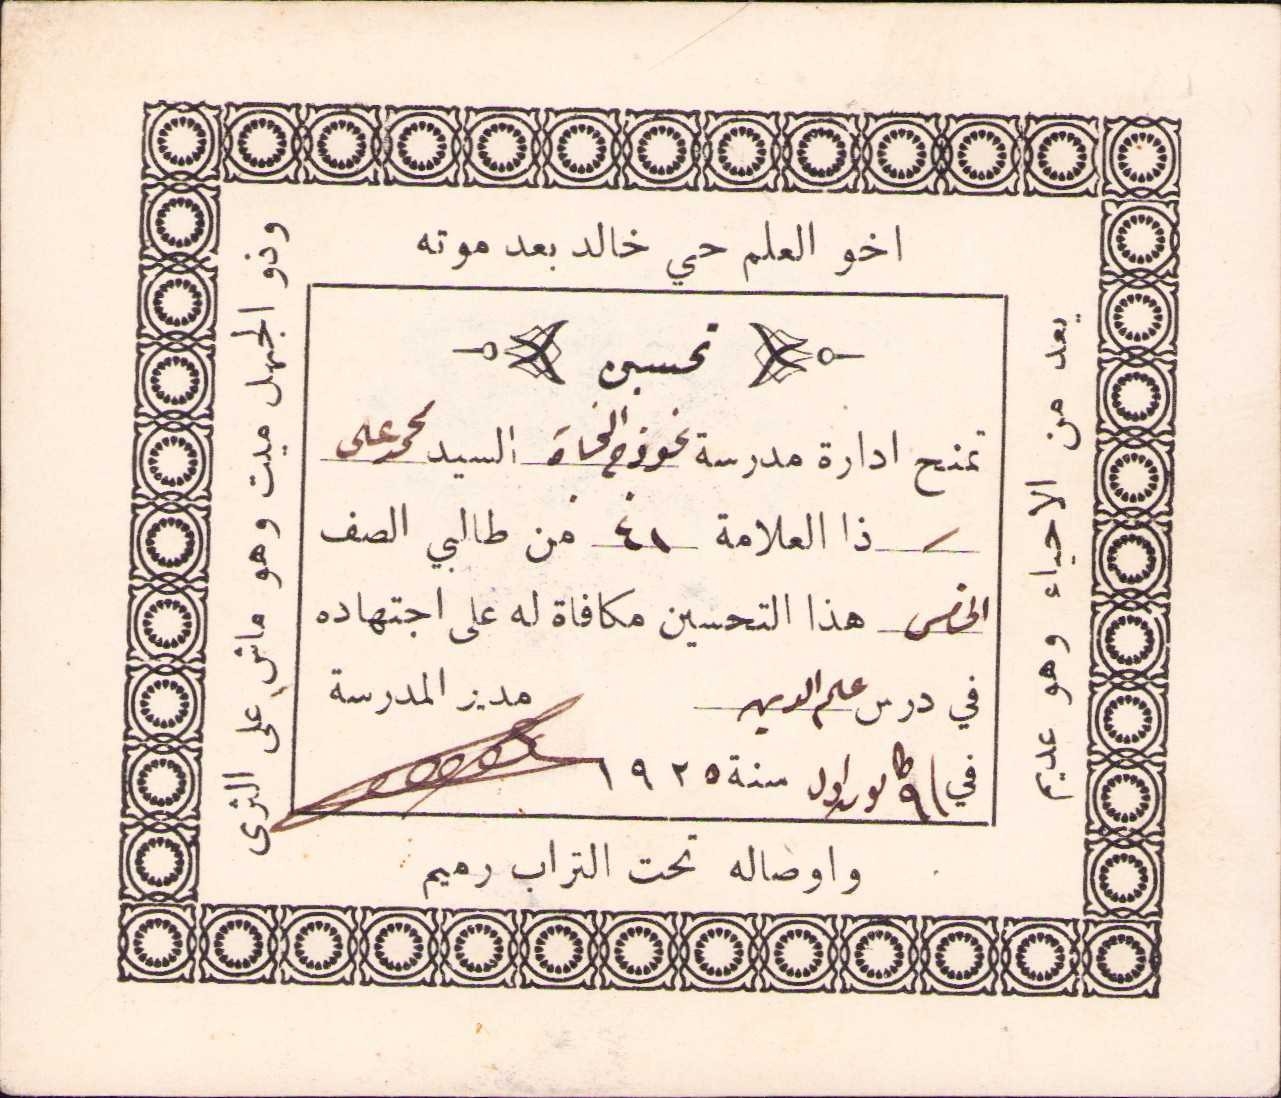 اخو العلم حي خالد بعد موته
واوصاله تحت التراب رميم
وذو الجهل ميت وهو ماشٍ على الثرى
يعد من الاحياء وهو عديم
تحسين
تمنح ادارة مدرسة نموذج السيد محمد علي
ذا العلامة من طالبي الصف
الخامس هذا التحسين مكافاة له على اجتهاده
في درس علم الدين مدير المدرسة
في اول سنة ١٩٢٥